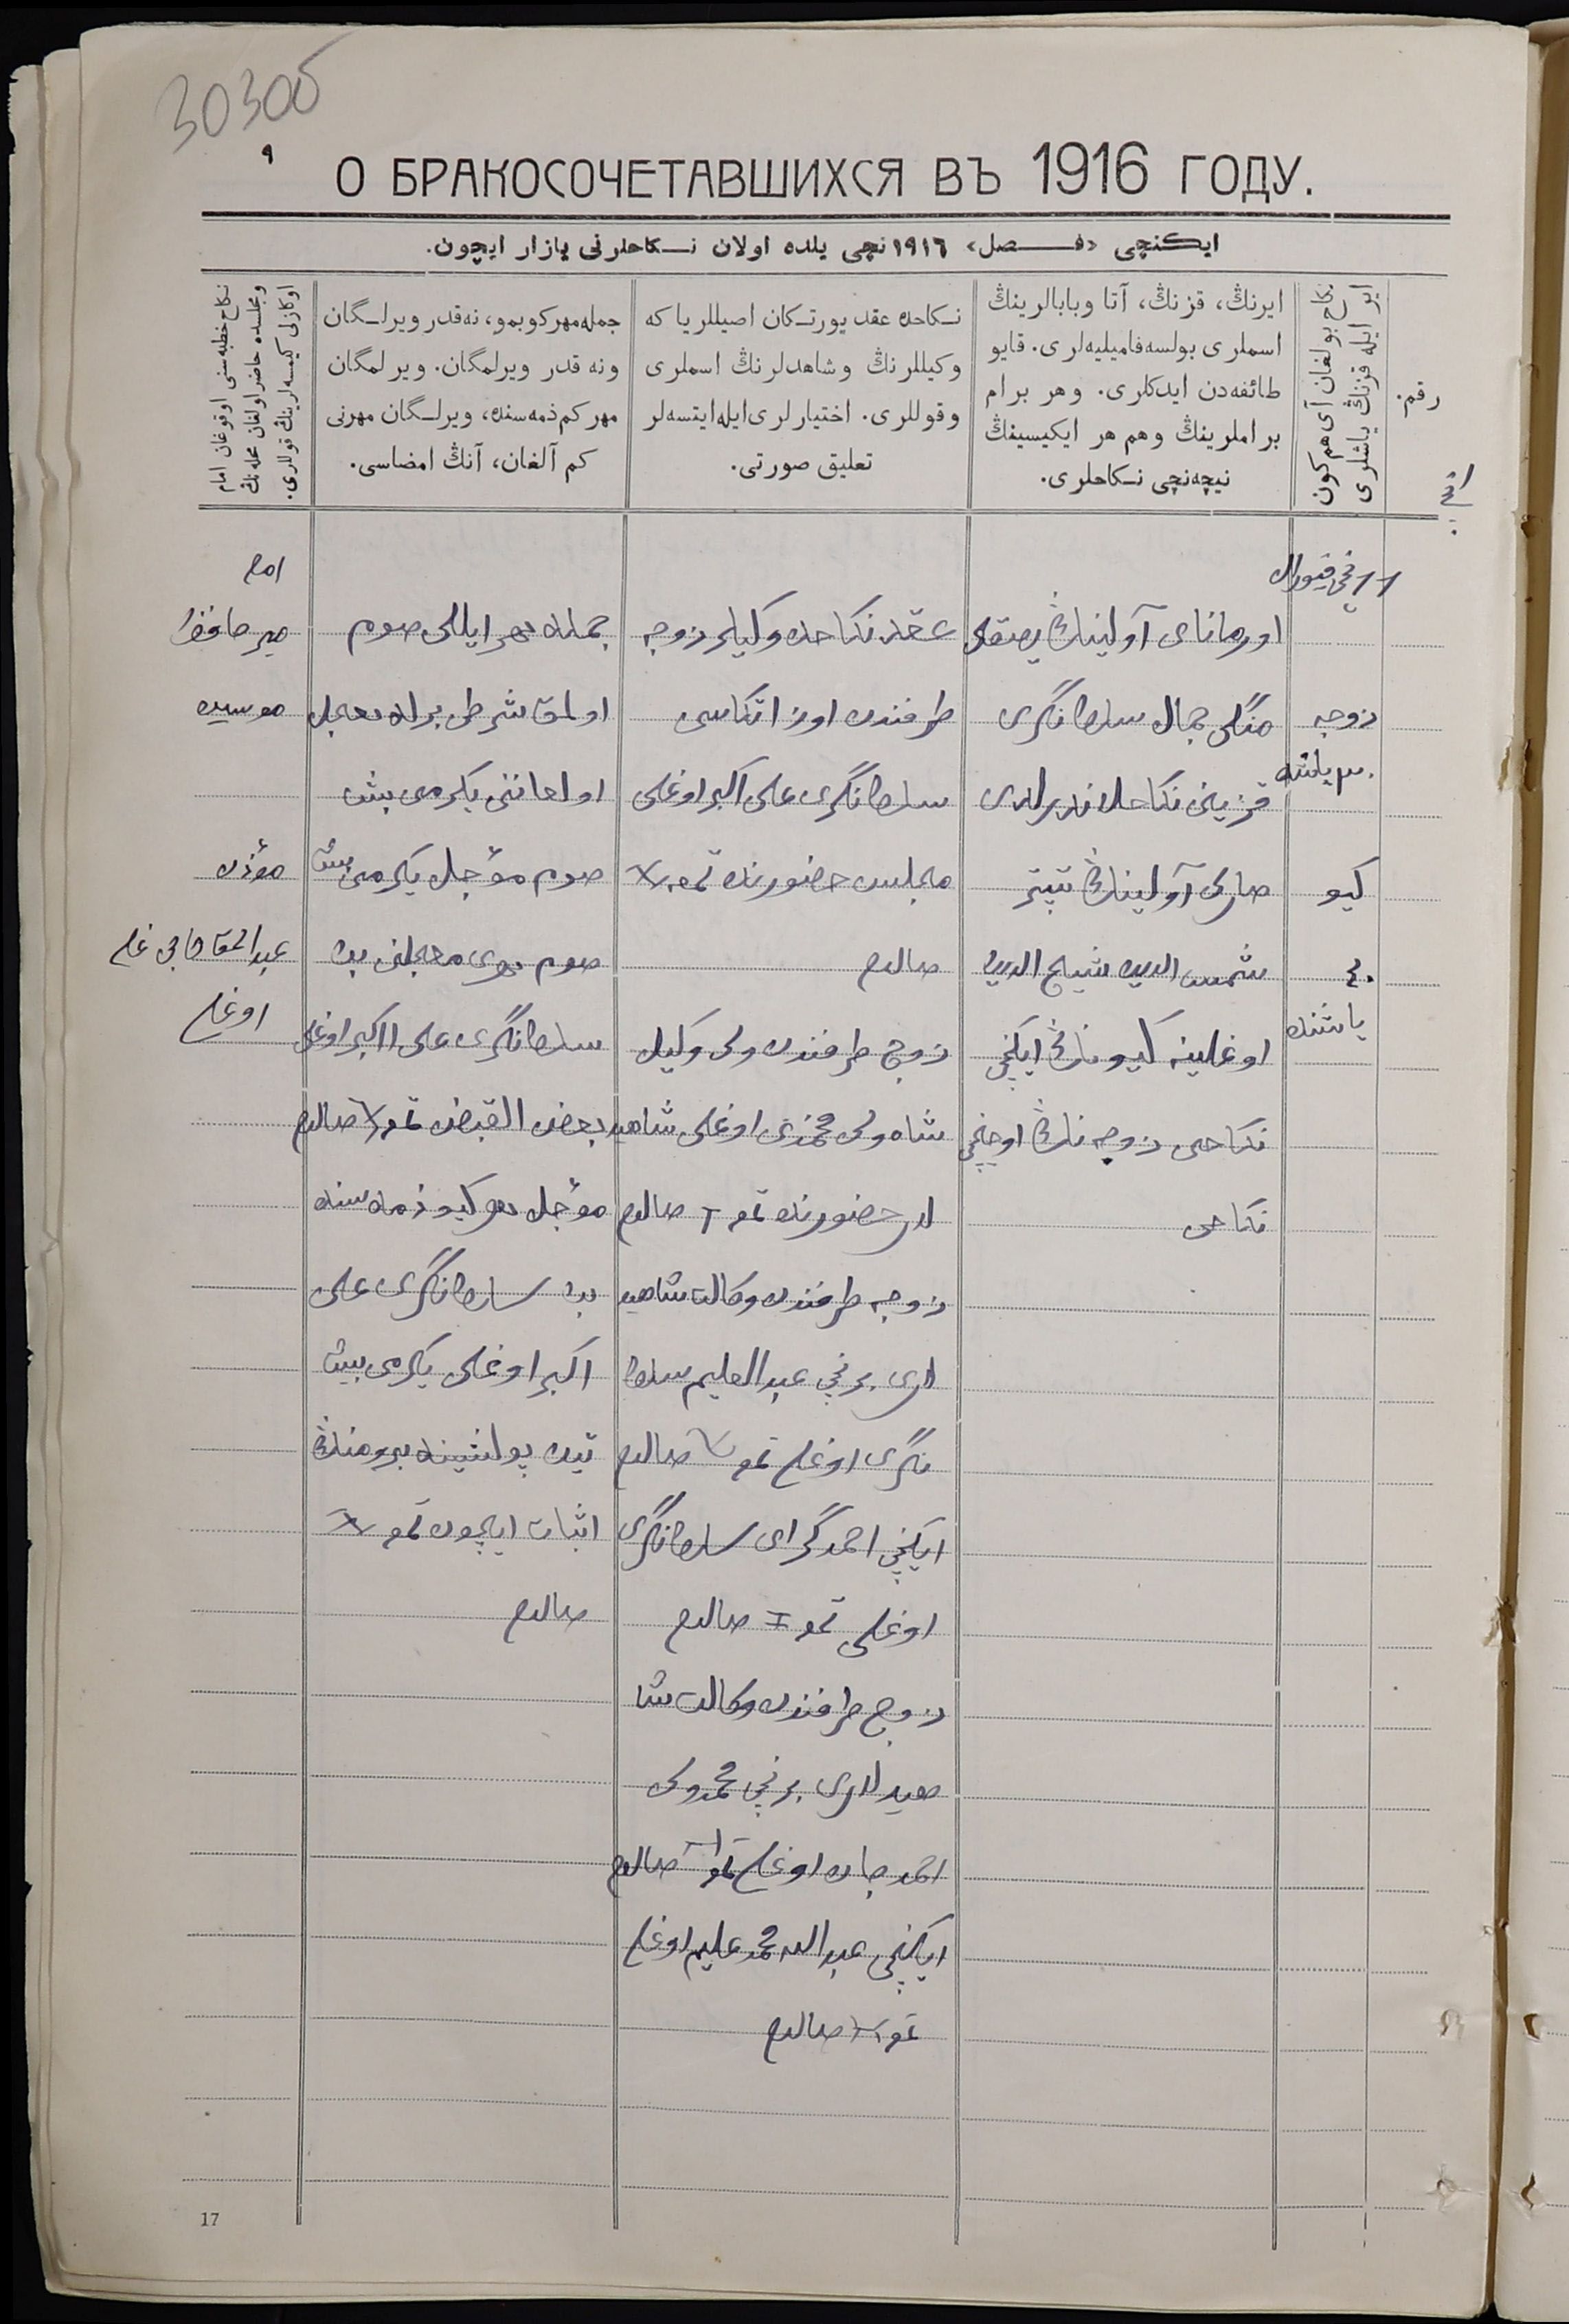 30305
٩
О БРАКОСОЧЕТАВШИХСЯ ВЪ 1916 ГОДУ.
ایكنچی «فـصل» ١٩١٦ نچی یلده اولان نـكاحلرنی یازار ایچون.
رقم.
ایر ایله قزنڭ یاشلری
نكاح بولغان آی هم كون
ایرنڭ، قزنڭ، آتا وبابالرینڭ
اسملری بولسه فامیلیه‌لری. قایو
طائفه‌دن ایدكلری. وهر برام
براملرینڭ وهم هر ایكیسینڭ
نیچه‌نچی نـكاحلری.
نـكاحده عقد یورتـكان اصیللریا كه
وكیللرنڭ وشاهدلرنڭ اسملری
وقوللری. اختیارلری ایله ایتسه‌لر
تعلیق صورتی.
جمله‌مهر كوبمو، نه‌قدر ویرلـگان
ونه قدر ویرلمگان. ویرلمگان
مهر كم ذمه‌سنده، ویرلـگان مهرنی
كم آلغان، آنڭ امضاسی.
نكاح خطبه سنی اوقوغان امام
ومجلسده حاضر اولغان محله‌نڭ
اوكازلی كیمسه‌لرینڭ قوللری.
١١ نچی فیورال
زوجه
٣٠ یاشده
كیو
٤٠
یاشنده
اورمانای آولینڭ
منگلی جمال سلطانگری
قزینی نكاحلاندیرلدی
صارلی آولینڭ تیپتر
شمس الدین شیخ الدین
اوغلینه كیونڭ ایكنچی
نكاحی زوجه نڭ اوچنچی
نكاحی
عقد نكاحده وكیللر زوجه
طرفندن اوز اتكاسی
سلطانگری علی اكبر اوغلی
مجلس حضورنده تمغه
صالدم
زوج طرفندن ولی وكیل
شاه ولی اوغلی شاهید
لر حضورنده تمغ صالدم
زوجه طرفندن وكالت شاهید
لری برنچی عبدالعلیم سلطا
نگری اوغلی تمغ صالدم
ایكنچی احمدگرای سلطانگری
اوغلی تمغ صالدم
زوج طرفندن وكالت شا
هیدلری برنچی محمدولی
احمدجان اوغلی تمغ صالدم
ایكنچی عبدالله محمدعلیم اوغلی
تمغ صالدم
جمله مهر ایللی صوم
اولمق شرطی برله معجل
اولغاننی یكرمی بش
صوم مؤجل یكرمی بش
صوم مهری معجلنی بن
سلطانگری علی اكبر اوغلی
بعض القبض تمغ صالدم
مؤجل مهر كیو ذمه سنده
بن سلطانگری علی
اكبر اوغلی یكرمی بیش
اثبات ایچون تمغ
صالدم
امام
میرحافظ
موسین
مؤذن
عبدالحق
اوغلی
17